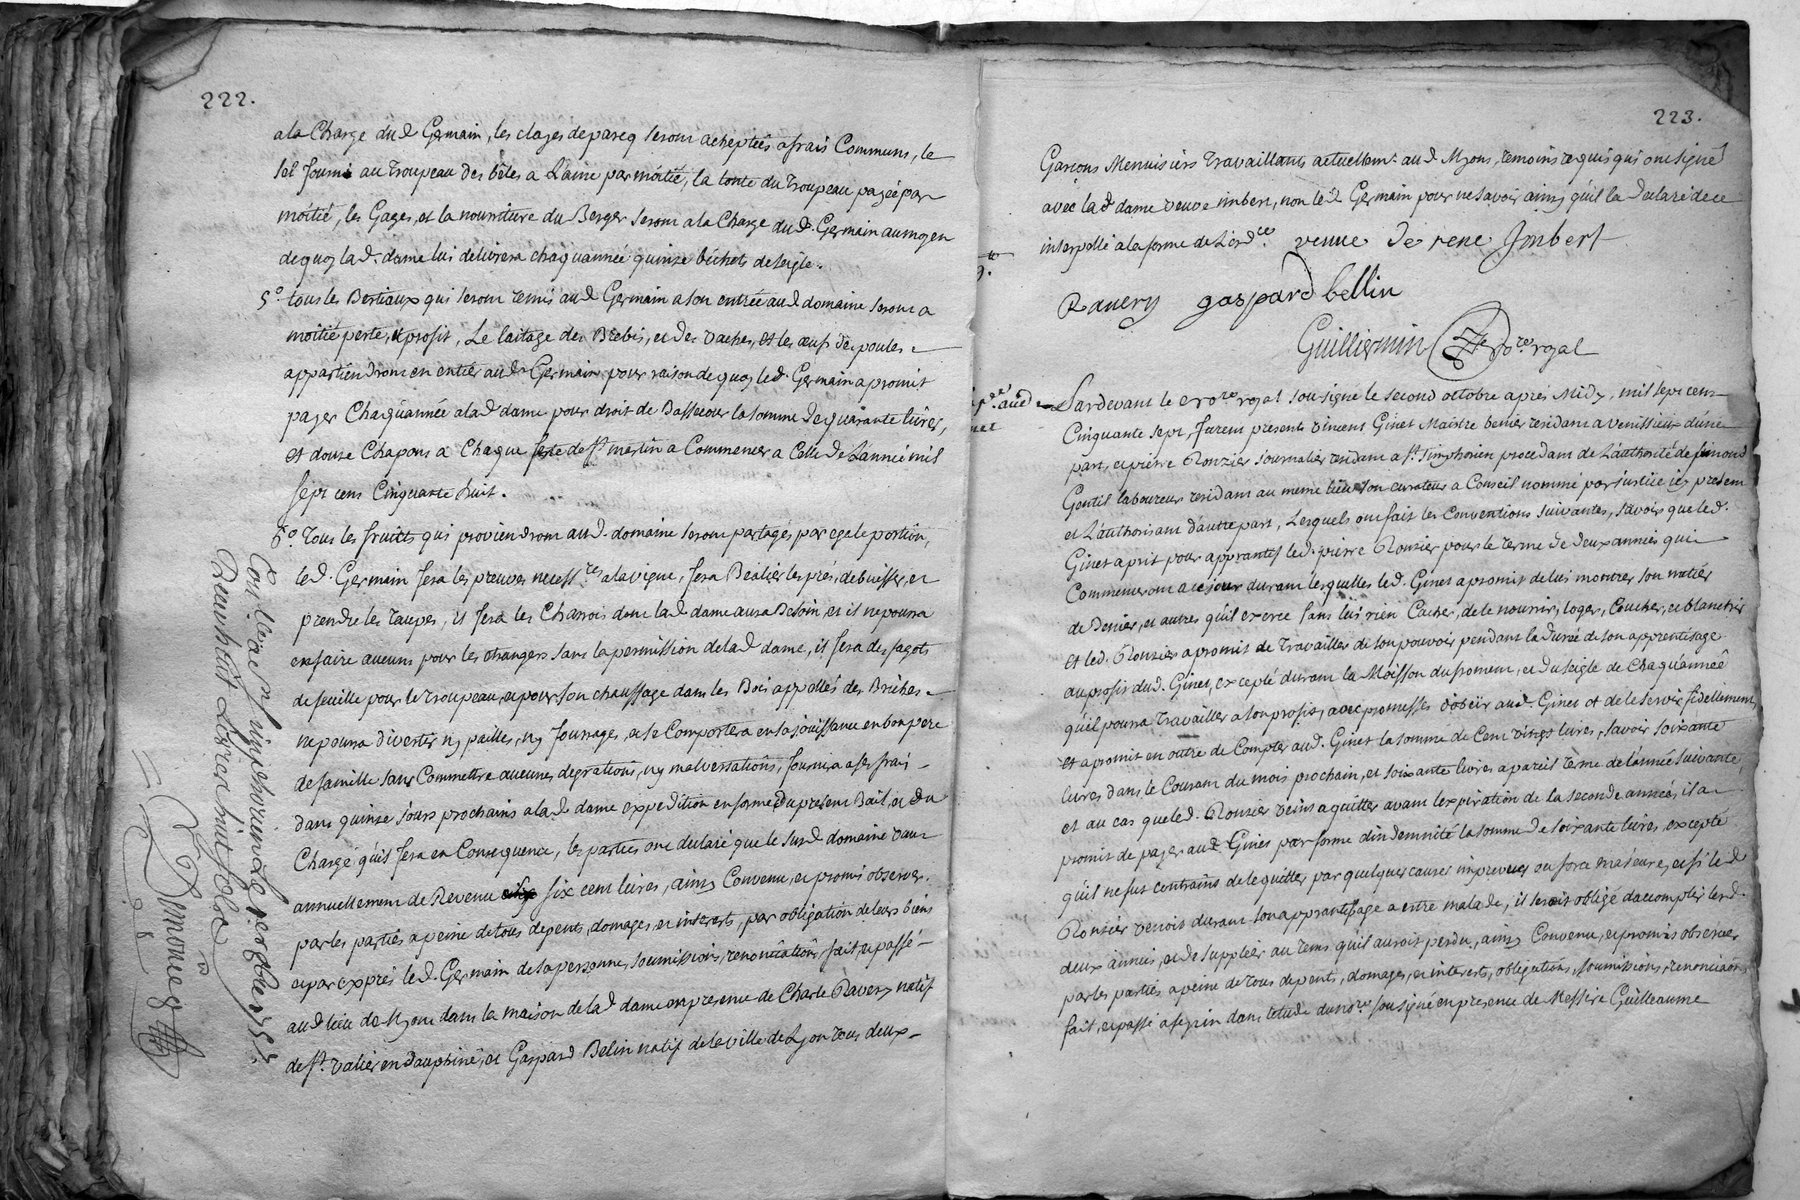 222.
a la Charge dud Germain, les clages de parcq seront acheptées a frais Communs, le
sel fourni au troupeau des bêtes a Laine par moitié, la tonte du troupeau payée par
moitié, les Gages, et la nourriture du Berger seront a la Charge dud. Germain au moyen
de quoy lad. dame lui delivrera chaqu'année quinze bichets de seigle.
5° tous les Bestiaux qui seront remis aud Germain a son entrée aud domaine seront a
moitié perte, & profit, Le laitage des Brebis, et des vaches, et les œufs des poules
appartiendront en entier aud Germain pour raison de quoy led. Germain a promit
payer Chaqu'année a lad dame pour droit de Bassecour la somme de quarante livres,
et douze Chapons a Chaque feste de st martin a Commencer a Celle de L'année mil
sept cent Cinquante huit.
6° Tous les fruitts qui proviendront aud. domaine seront partagés par egale portion,
led. Germain fera les preuves necessres a la vigne, fera Bealier les prés, debuisser, et
prendre les taupes, il fera les Charrois dont lad dame aura Besoin et il ne pourra
en faire aucuns pour les etrangers sans la permission de lad dame, il fera des fagots
de feuille pour le troupeau, et pour son chauffage dans les Bois appellés des Brûhes
ne pourra divertir ny pailles, ny fourrages, et se Comportera en sa jouissance en bon pere
de famille sans Commettre aucunes degrations, ny malversations, fournira a ses frais
dans quinze jours prochains a lad dame expedition en forme du present Bail, et du
Chargé qu'il fera en Consequence, les parties ont declaré que le susd domaine vaut
annuellement de Revenu six cent livres, ainsy Convenu, et promis observer
par les parties a peine de tous depents, domages, et interets, par obligation de leurs biens
et par exprés led. Germain de sa personne, soumissions, renonciations, fait, et passé
aud lieu de Myons dans la maison de lad dame en presence de Charle Ravery natif
de st. valier en dauphiné, et Gaspard Belin natif de la ville de Lyon tous deux
223.
Garçons Menuisiers travaillants actuellemt. aud Myons, temoins requis qui ont signé
avec lad dame veuve imbert, non led Germain pour ne savoir ainsy qu'il la declaré de ce
interpellé a la forme de L'ordce. veuue de rene Jmbert
Rauery gaspard bellin
Guilliermin nore royal
Pardevant le nore royal soussigné le second octobre aprés Midy, mil sept cent
Cinquante sept, furent presents vincent Ginet Maistre benier residant a venissieux d'une
part, et pierre Ronzier Journalier residant a st. simphorien procedant de L'authorité de simond
Gentil laboureur residant au meme lieu son curateur a Conseil nommé par justice icy present
et L'authorisant d'autre part, Lesquels ont fait les Conventions suivantes, savoir que led.
Ginet a prit pour apprantif led. pierre Ronzier pour le terme de deux années qui
Commenceront a ce jour durant lesquelles led. Ginet a promit de lui montrer son metier
de Benier, et autres qu'il exerce sans lui rien Cacher, de le nourrir, loger, Coucher, et blanchir
et led. Ronzier a promit de travailler de son pouvoir pendant la durée de son apprentisage
au profit dud. Ginet, excepté durant la Moisson du froment, et du seigle de Chaqu'année
qu'il pourra travailler a son profit, avec promesses d'obeir aud. Ginet et de le servir fidellement,
et a promit en outre de Compter aud. Ginet la somme de Cent vingt livres, savoir soixante
livres dans le Courant du mois prochain, et soixante livres a pareil terme de l'année suivante,
et au cas que led. Ronzier vint a quitter avant l'expiration de la seconde année, il a
promit de payer aud. Ginet par forme d'indemnité la somme de soixante livres, excepté
qu'il ne fut contraint de le quitter par quelques causes imprevues ou force majeure, et si led
Ronzier venoit durant son apprantissage a estre malade, il seroit obligé d'accomplir lesd.
deux années, et de suppleer au tems qu'il auroit perdu, ainsy Convenu, et promis observer
par les parties a peine de tous depents, domages, et interets, obligations, soumissions, renonciaons
fait, et passé a feyzin dans letude du nore soussigné en presence de Messire Guilleaume